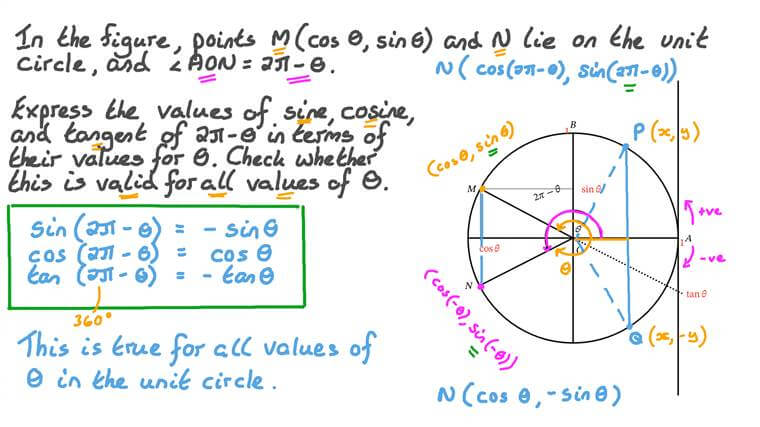 In the figure, points M(cos θ, sin θ) and N lie on the unit
circle, and ∠AON = 2π - θ.
Express the values of sine, cosine,
and tangent of 2π - θ in terms of
their values for θ. Check whether
this is valid for all values of θ.
sin (2π - θ) = - sin θ
cos (2π - θ) = cos θ
tan (2π - θ) = - tan θ
360°
This is true for all values of
θ in the unit circle.
N( cos(2π-θ), sin(2π-θ))
B
1
P (x, y)
(cosθ, sinθ)
M
2π - θ
sin θ
+ve
θ
1 A
cos θ
-ve
θ
N
tan θ
(cos(-θ), sin(-θ))
Q (x, -y)
N ( cos θ, - sin θ)